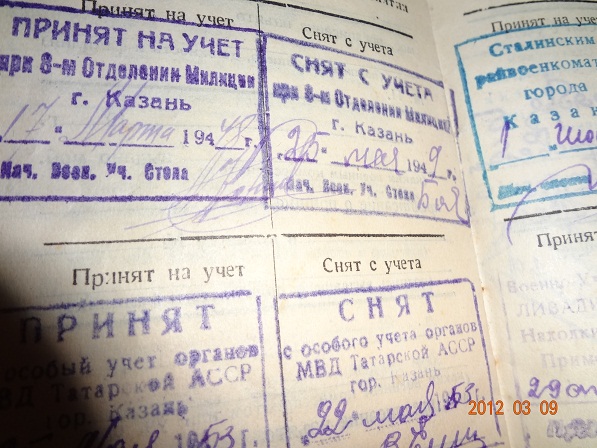 Принят на учет
ПРИНЯТ НА УЧЕТ
при 8-м Отделении Милиции
г. Казань
17 " Марта 1948 г.
Нач. Воен. Уч. Стола
Снят с учета
СНЯТ С УЧЕТА
при 8-м Отделении Милиции
г. Казань
" 25 " мая 1949 г.
Нач. Воен. Уч. Стола
Принят на учет
Сталинским
райвоенкомат
города
Каза
1
Принят на учет
ПРИНЯТ
особый учет органов
МВД Татарской АССР
гор. Казань
1953г.
Снят с учета
СНЯТ
с особого учета органов
МВД Татарской АССР
гор. Казань
"22" мая 1953г.
Принят
Военно-У
ЛИВАДИ
Находки
29
2012 03 09